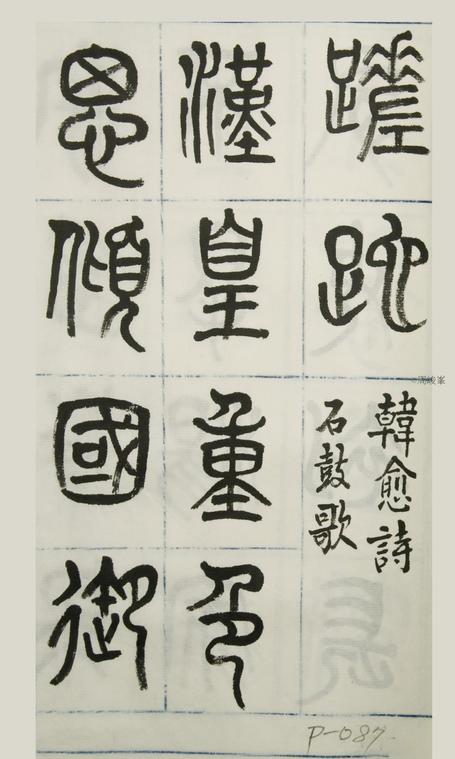 蹉跎
韓愈詩
石鼓歌
漢皇重色
思傾國御
P-087